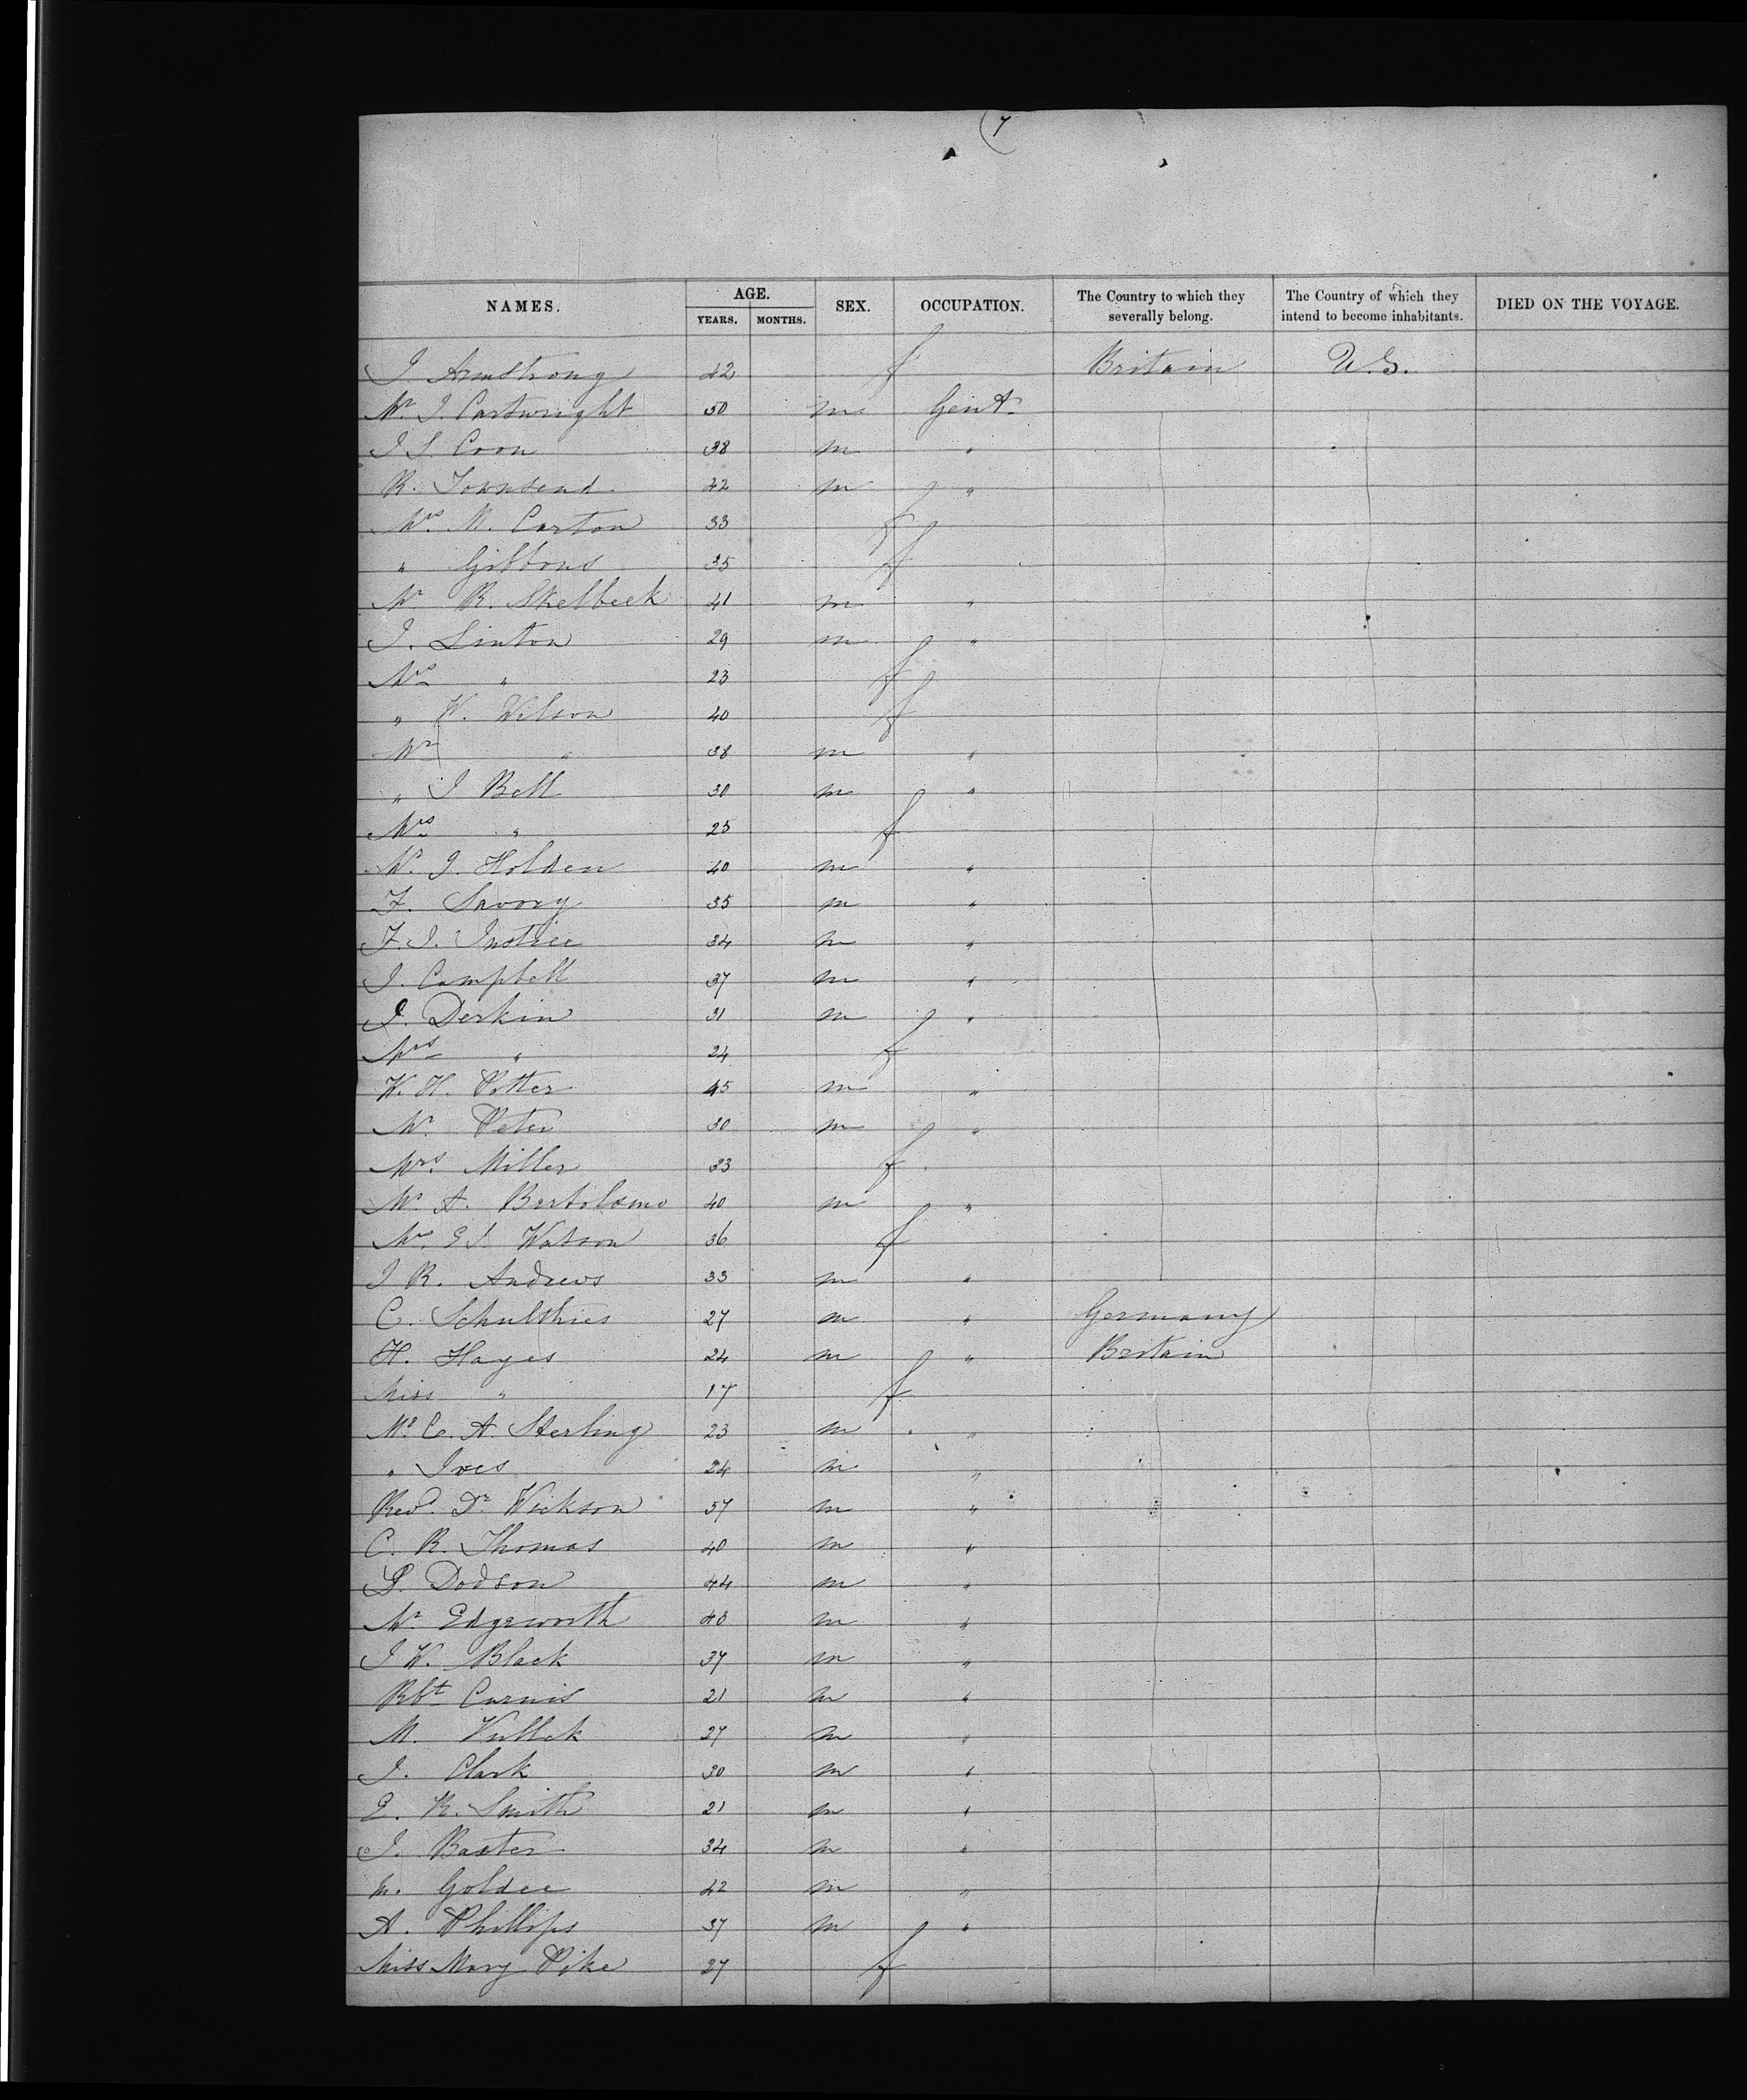 7
NAMES. AGE. YEARS. MONTHS. SEX. OCCUPATION. The Country to which they severally belong. The Country of which they intend to become inhabitants. DIED ON THE VOYAGE.
J. Armstrong 42 f Britain U.S.
Mr J. Cartwright 50 m Gent.
J S. Coon 38 m "
R. Townsend 42 m "
Mrs M. Carton 33 f
" Gibbons 35 f
Mr R. Skelbeck 41 m "
J. Linton 29 m "
Mrs " 23 f
" W. Wilson 40 f
Mr " 38 m "
" J Bell 30 m "
Mrs " 25 f
Mr J. Holden 40 m "
F. Savory 35 m "
F. J. Justice 34 m "
J. Campbell 37 m "
J. Derkin 31 m "
Mrs " 24 f
W. H. Potter 45 m "
Mr Peter 30 m "
Mrs Miller 33 f
Mr A. Bartolomo 40 m "
Mrs E J. Watson 36 f
J R. Andrews 33 m "
C. Schulthies 27 m " Germany
H. Hayes 24 m " Britain
Miss " 17 f
Mr C. A. Sterling 23 m "
" Ives 24 m "
Revd. Dr Wickson 57 m "
C. R. Thomas 40 m "
S. Dodson 44 m "
Mr Edgeworth 40 m "
J W. Black 37 m "
Rbt Curnis 21 m "
M. 27 m "
J. Clark 30 m "
E. R. Smith 21 m "
J. Baxter 34 m "
M. Goldee 42 m "
A. Phillips 37 m "
Miss Mary Pike 27 f